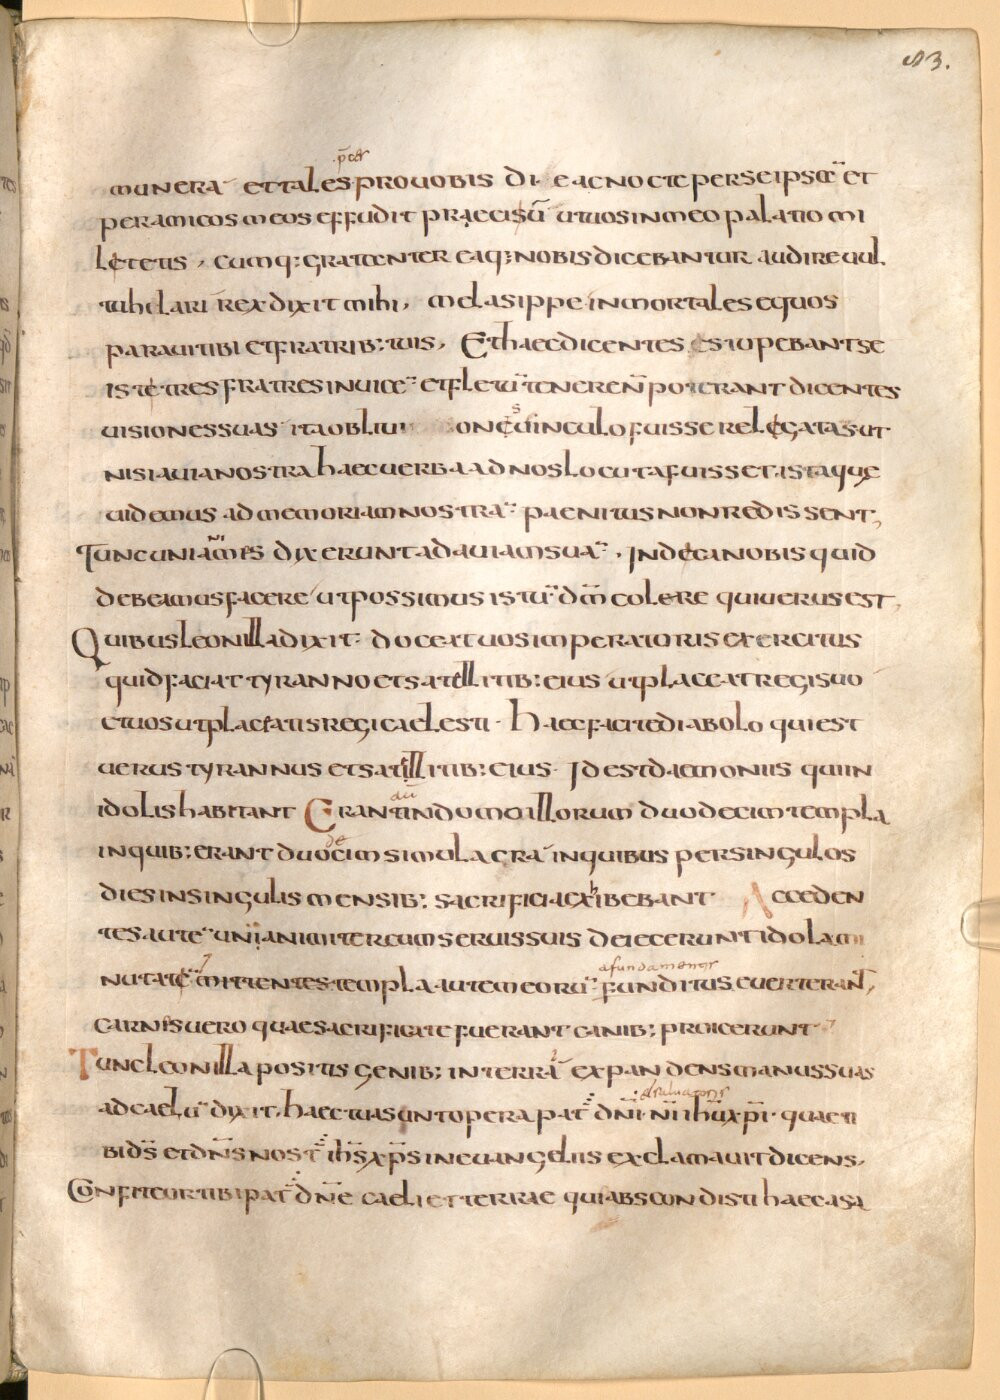 83.
p̄ceſ
munera et tales pro uobis die ac nocte per se ipsā et
per amicos meos effudit praecisū ut uos in meo palatio mi
letetis, cumq; gratanter eaq; nobis dicebantur audire uul
tu hclari rex dixit mihi, melasippe inmortales equos
paraui tibi et fratrib; tuis, Et haec dicentes stupebant se
iste tres fratres inuicē et fletū tenere n̄ poterant dicentes
uisiones suas ita obliu onis uinculo fuisse relegatas ut
nisi auia nostra haec uerba ad nos locuta fuisset, ista que
uidemus ad memoriam nostrā paenitus non redissent,
Tunc uniamės dixerunt ad auiam suā, Indeca nobis quid
debeamus facere ut possimus istū dm̄ colere qui uerus est,
Quibus leonilla dixit: doceat uos imperatoris exercitus
quid faciat tyranno et satillitib; eius ut placeat regi suo
et uos ut placeatis regi caelesti. haec facite diabolo qui est
uerus tyrannus et satillitib; eius. Id est daemoniis qui in
idolis habitant Erant autē in domo illorum duodecim templa
in quib; erant duodecim simulacra in quibus per singulos
dies in singulis mensib; sacrificia exhibebant Acceden
tes autē unianimiter cum seruis suis deiecerunt idola mi
nutatē mittentes templa autem eorū funditus euerteran̄t,
a fundamentis
carnes uero quae sacrificate fuerant canib; proicerunt
Tunc leonilla positis genib; in terrā expandens manus suas
ad caelū dixit, haec tua sunt opera pat̄ dn̄i nr̄i ihū xp̄i quae ti
bi ds̄ et dn̄s nost̄ ihs̄ xp̄s in euangeliis exclamauit dicens,
Confiteor tibi pat̄ dn̄e caeli et terrae qui abscondisti haec a sa